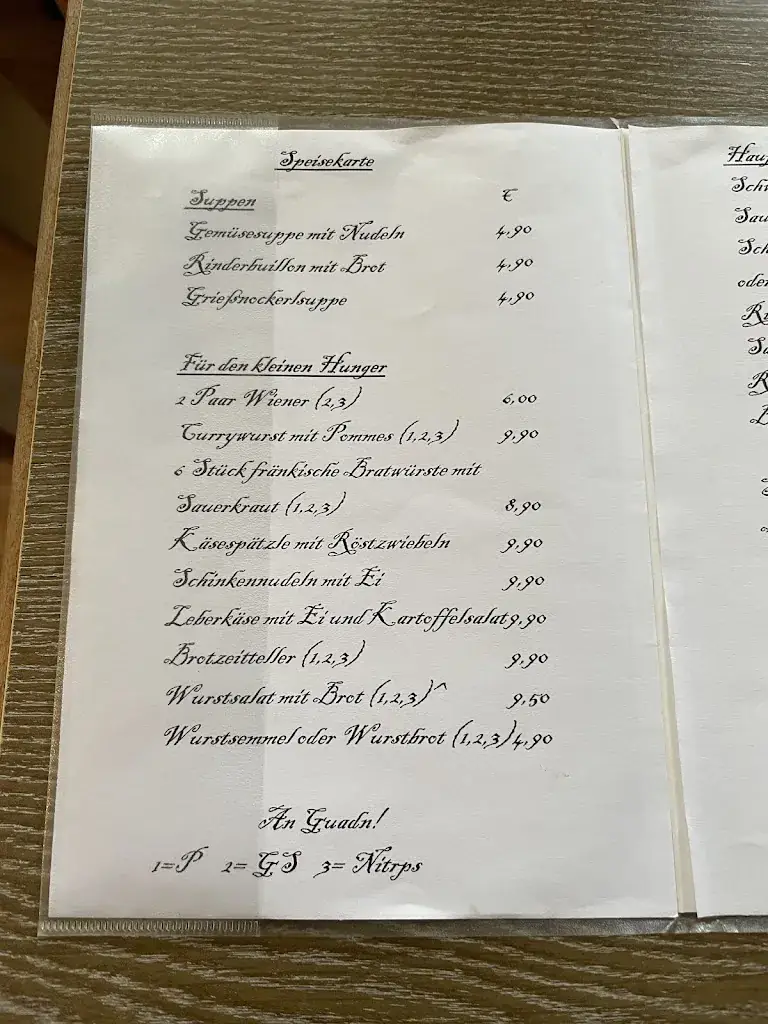 Speisekarte
Suppen €
Gemüsesuppe mit Nudeln 4,90
Rinderbuillon mit Brot 4,90
Grießnockerlsuppe 4,90
Für den kleinen Hunger
2 Paar Wiener (2,3) 6,00
Currywurst mit Pommes (1,2,3) 9,90
6 Stück fränkische Bratwürste mit
Sauerkraut (1,2,3) 8,90
Käsespätzle mit Röstzwiebeln 9,90
Schinkennudeln mit Ei 9,90
Leberkäse mit Ei und Kartoffelsalat 9,90
Brotzeitteller (1,2,3) 9,90
Wurstsalat mit Brot (1,2,3)^ 9,50
Wurstsemmel oder Wurstbrot (1,2,3) 4,90
An Guadn!
1=P 2= GS 3= Nitrps
oder